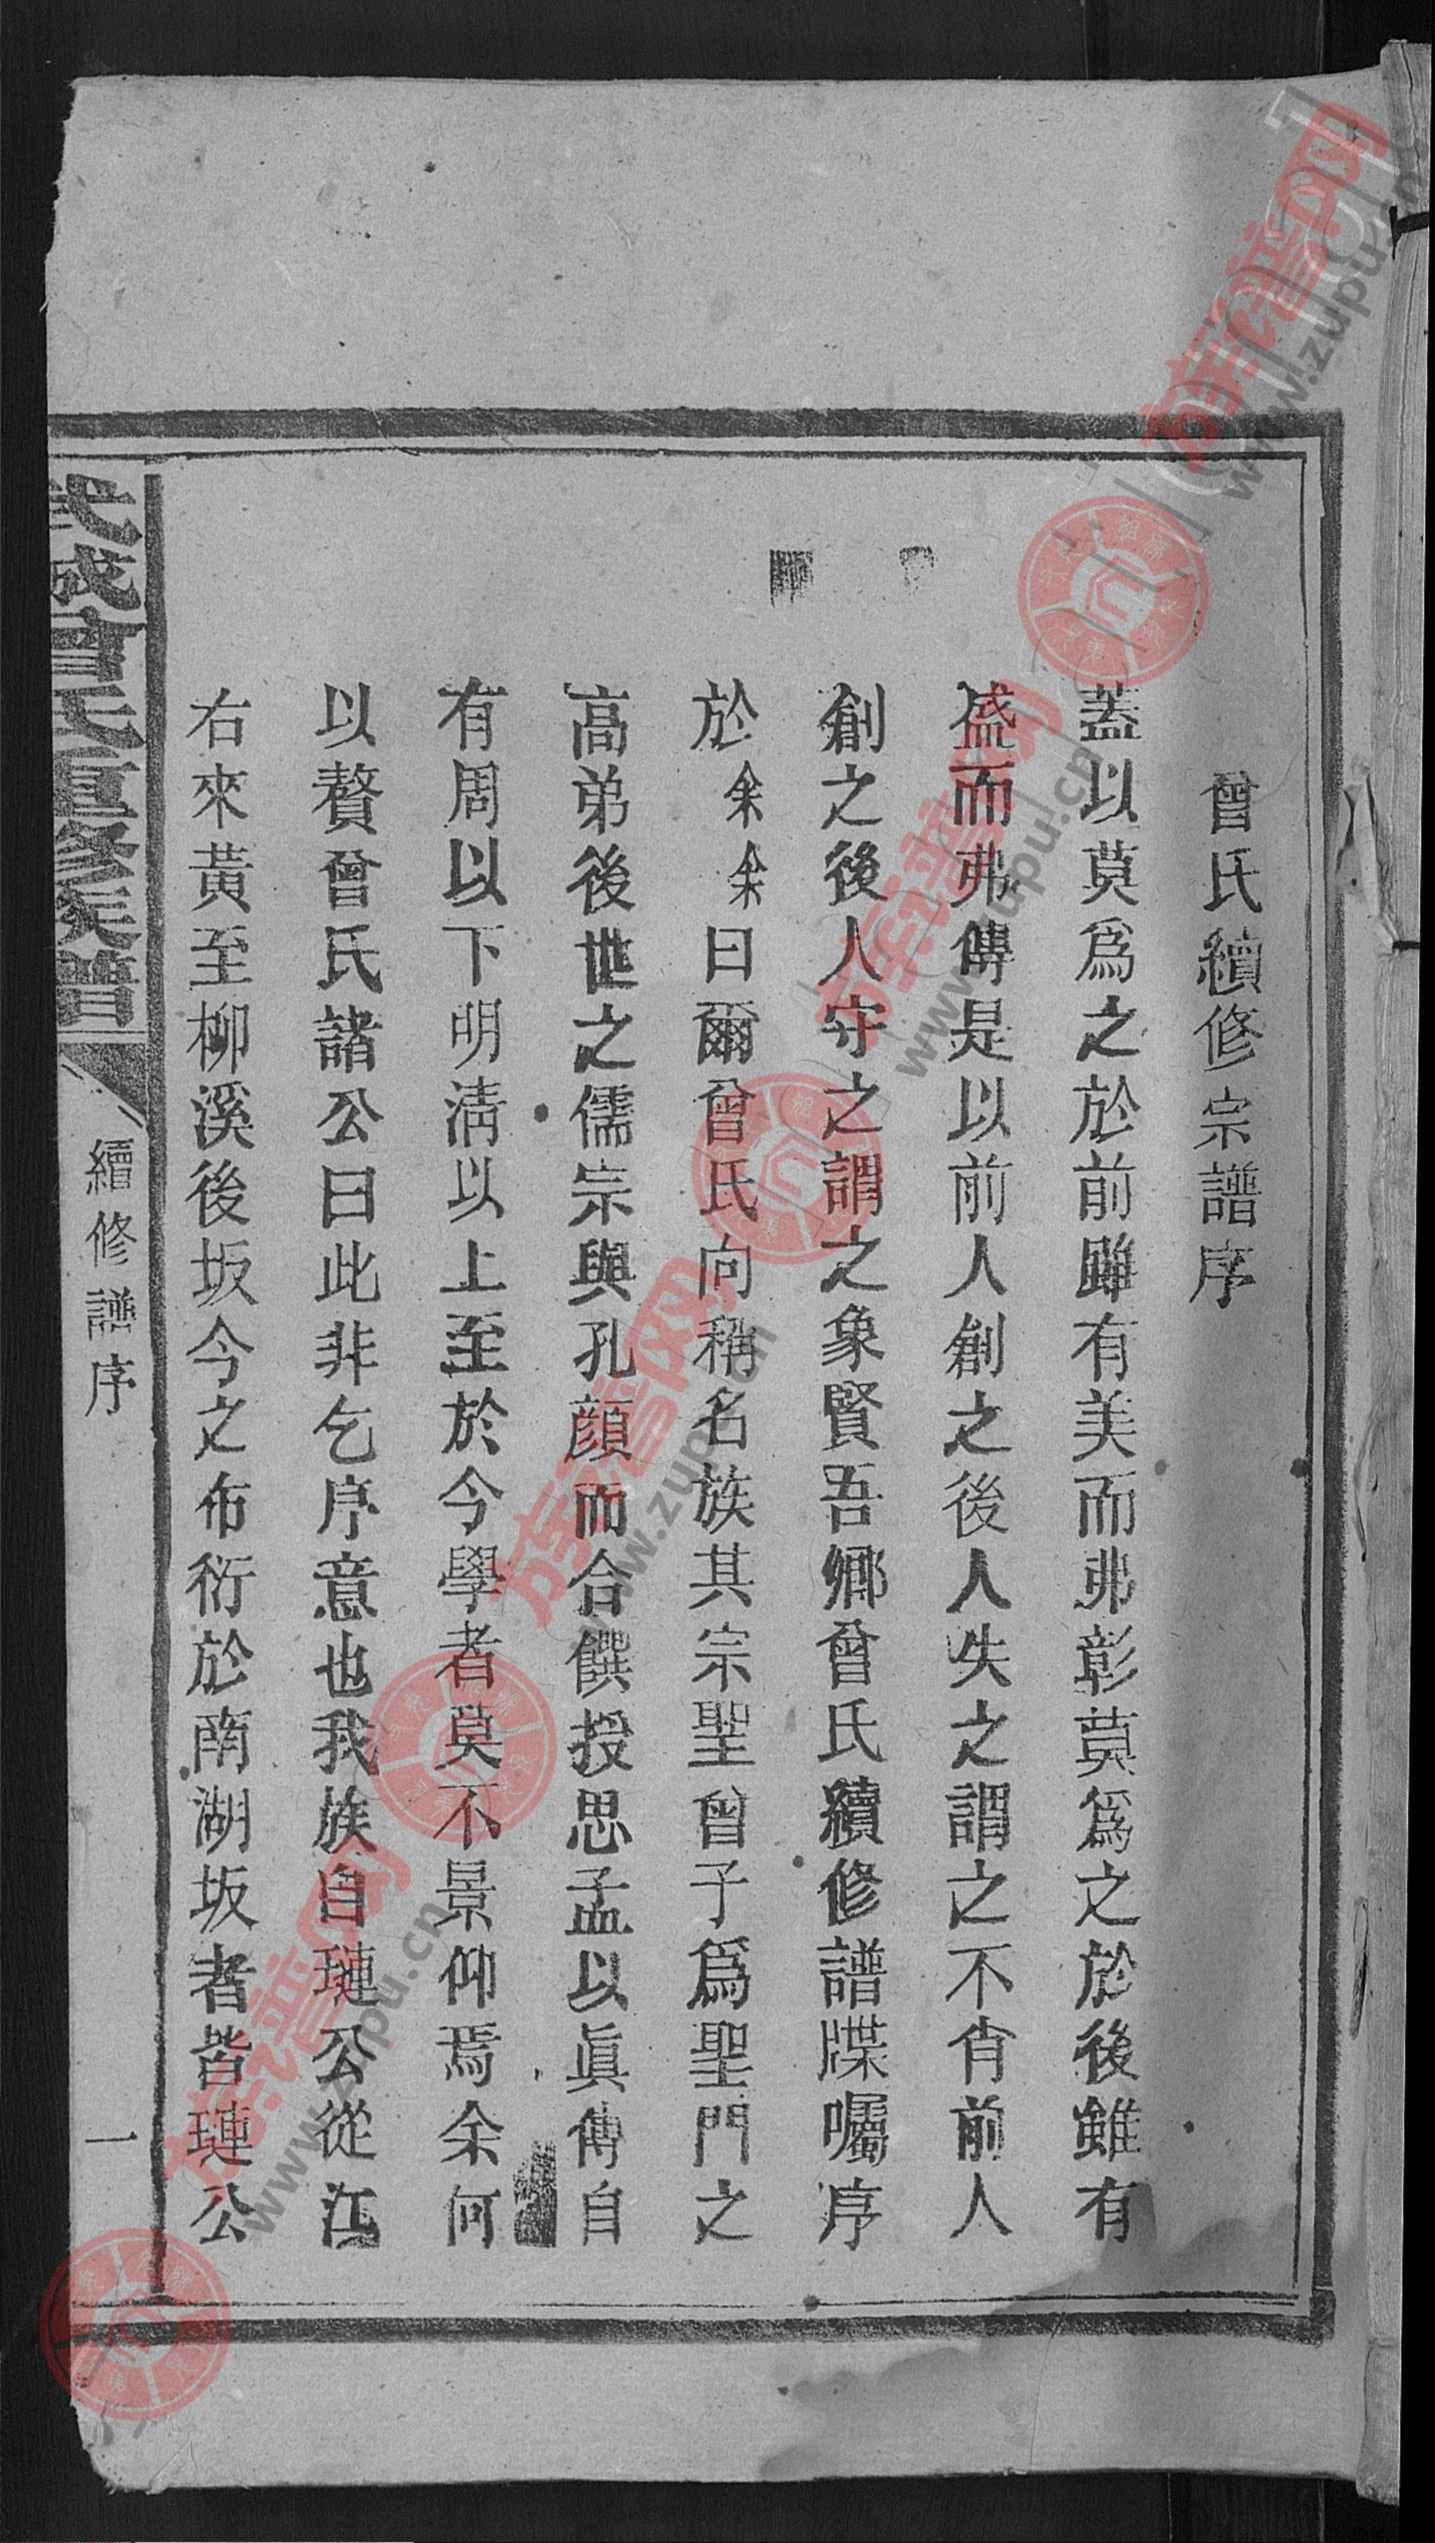 曾氏續修宗譜序
蓋以莫爲之於前雖有美而弗彰莫爲之於後雖有
盛而弗傳是以前人創之後人失之謂之不肖前人
創之後人守之謂之象賢吾鄉曾氏續修譜牒囑序
於余余曰爾曾氏向稱名族其宗聖曾子爲聖門之
高弟後世之儒宗與孔顔而合饌授思孟以眞傳自
有周以下明清以上至於今學者莫不景仰焉余何
以贅曾氏諸公曰此非乞序意也我族自璉公從江
右來黃至柳溪後坂今之布衍於南湖坂者皆璉公
武城曾氏重修族譜
續修譜序
一
族譜网
www.zupu.cn
族譜网
www.zupu.cn
族譜网
www.zupu.cn
族譜网
www.zupu.cn